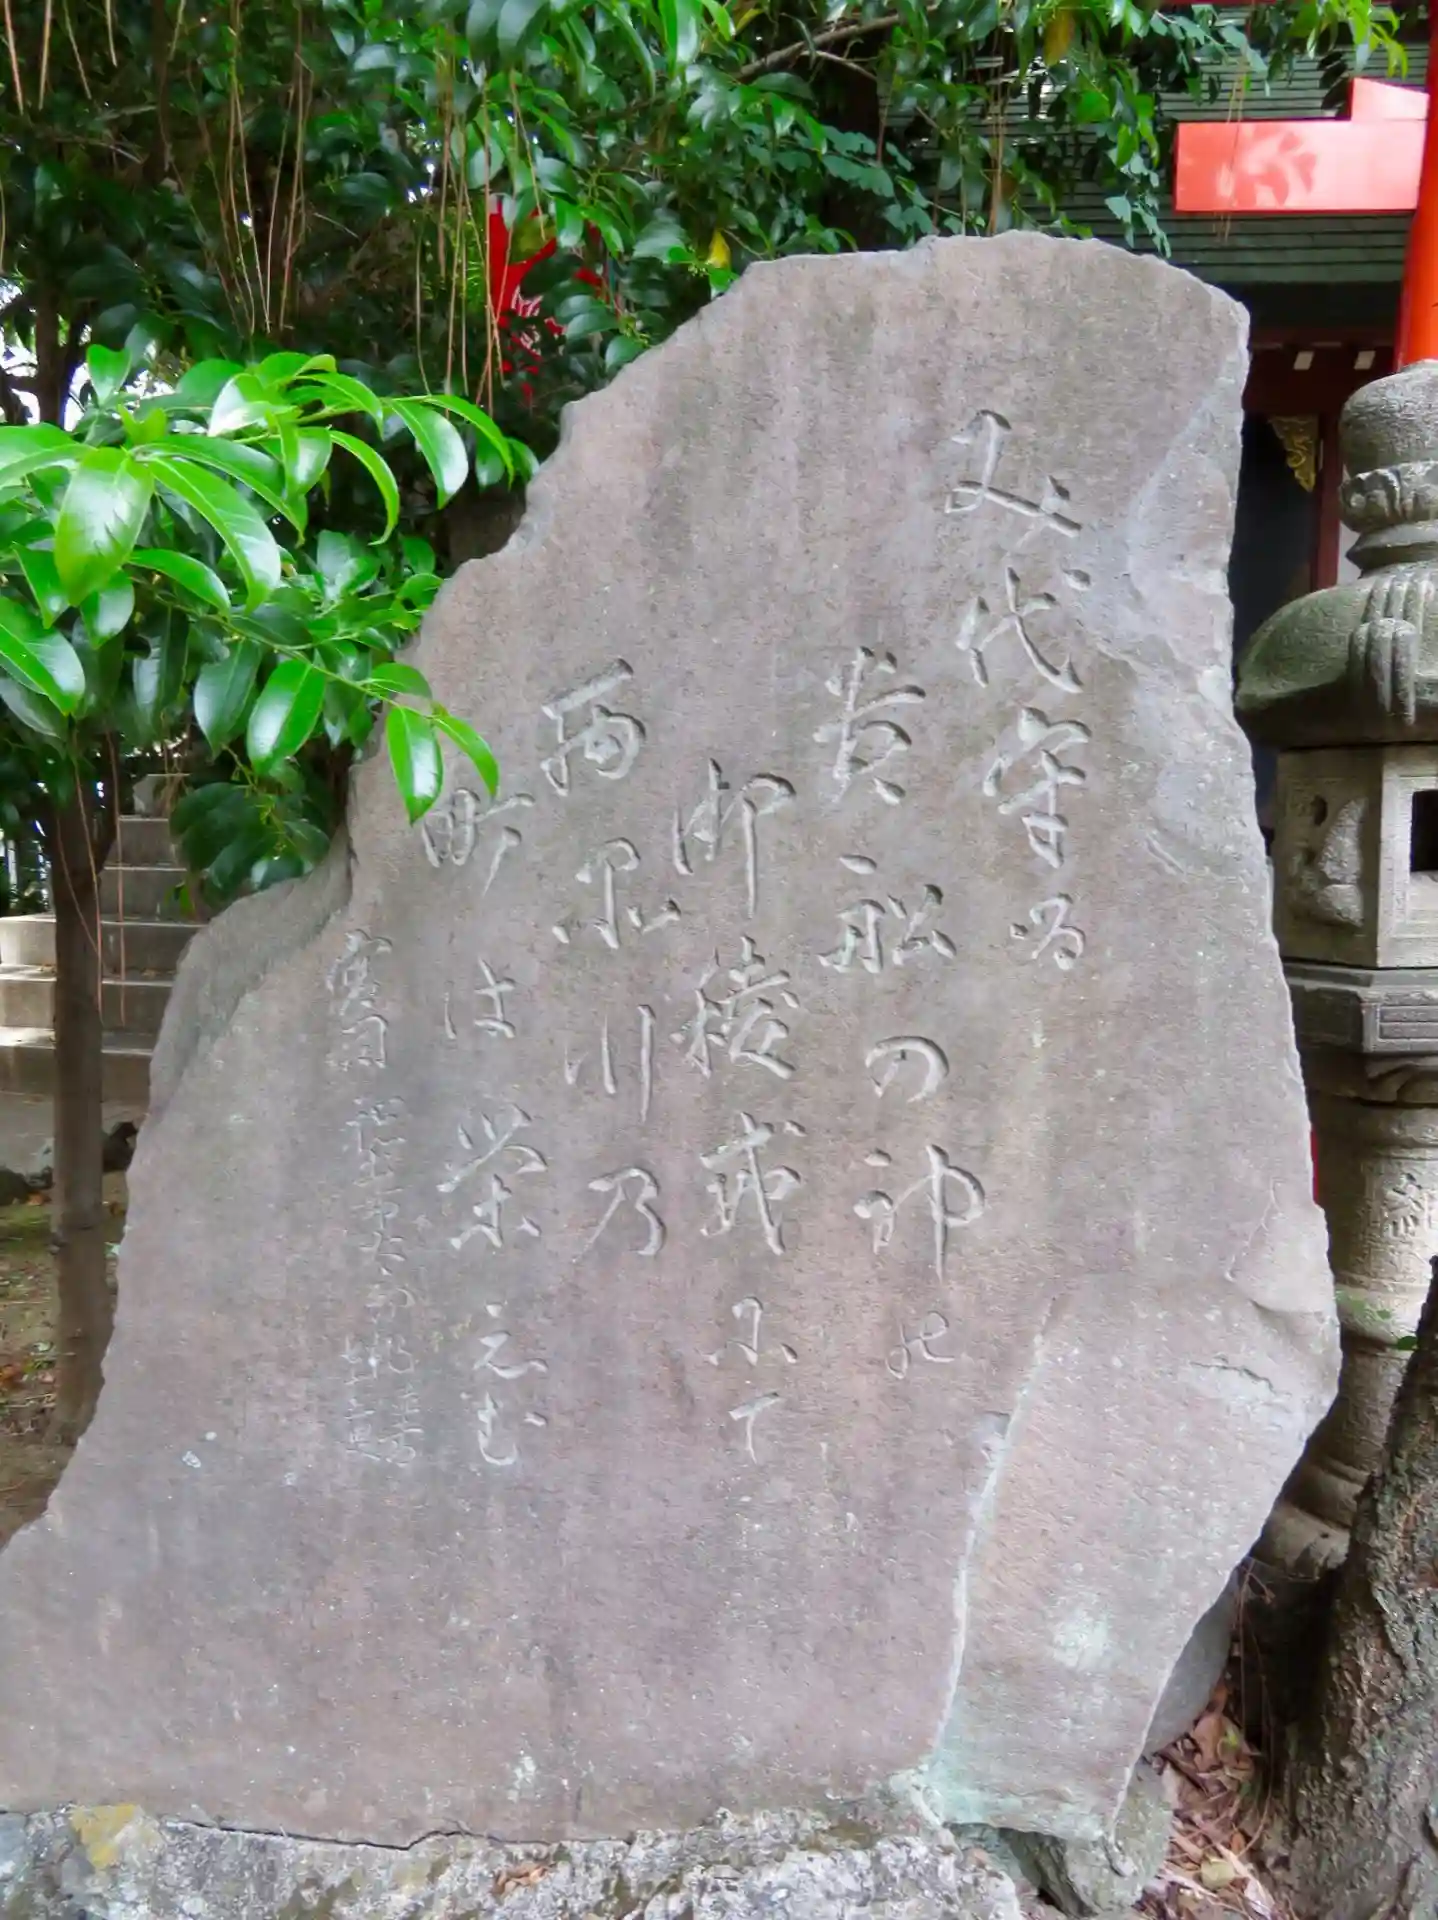 み代守る
貴船の神の
御稜威にて
南品川乃
町は栄えむ